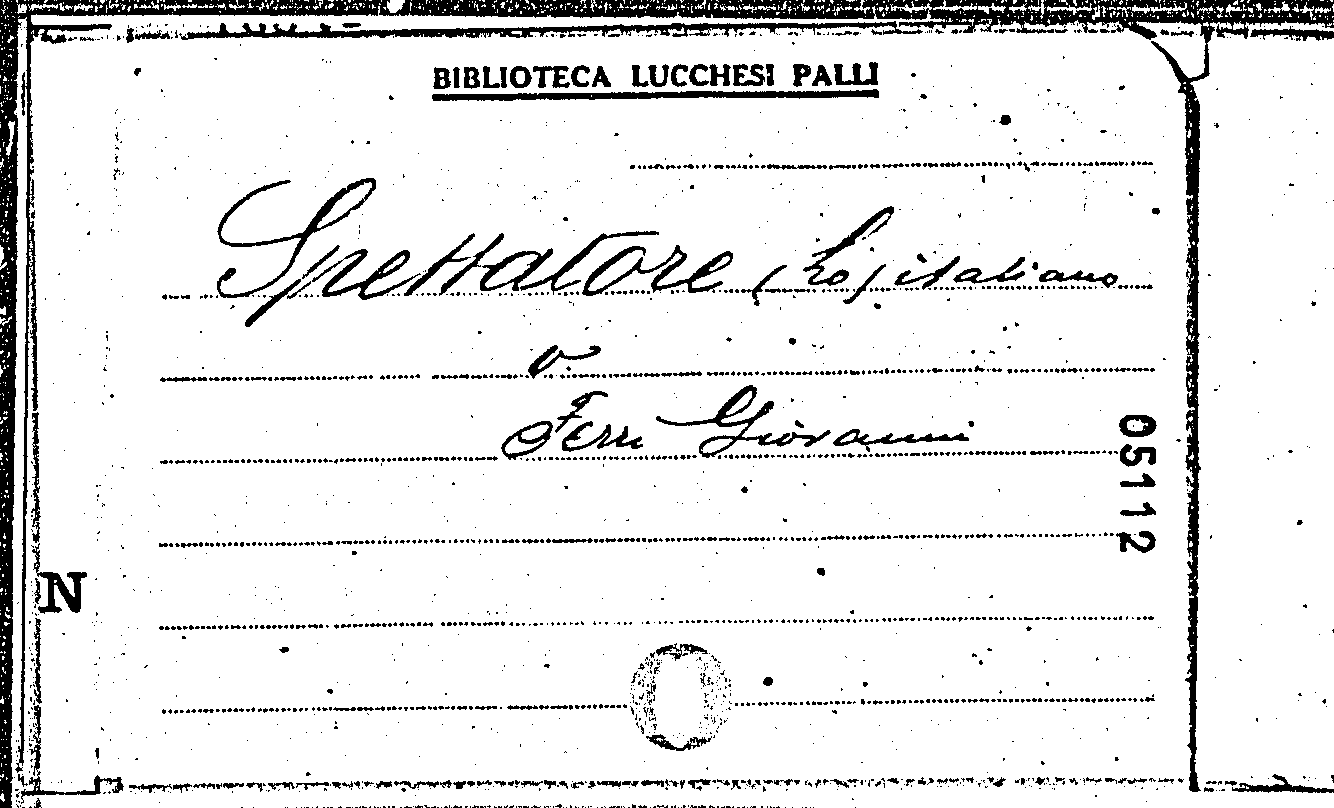 BIBLIOTECA LUCCHESI PALLI
Spettatore (Lo) italiano
v.
Ferri Giovanni
05112
N